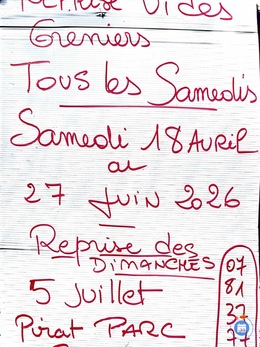 Reprise Vides
Greniers
Tous les Samedis
Samedi 18 AVRIL
au
27 Juin 2026
Reprise des
DIMANCHES
5 Juillet
Pirat PARC
07
81
32
77